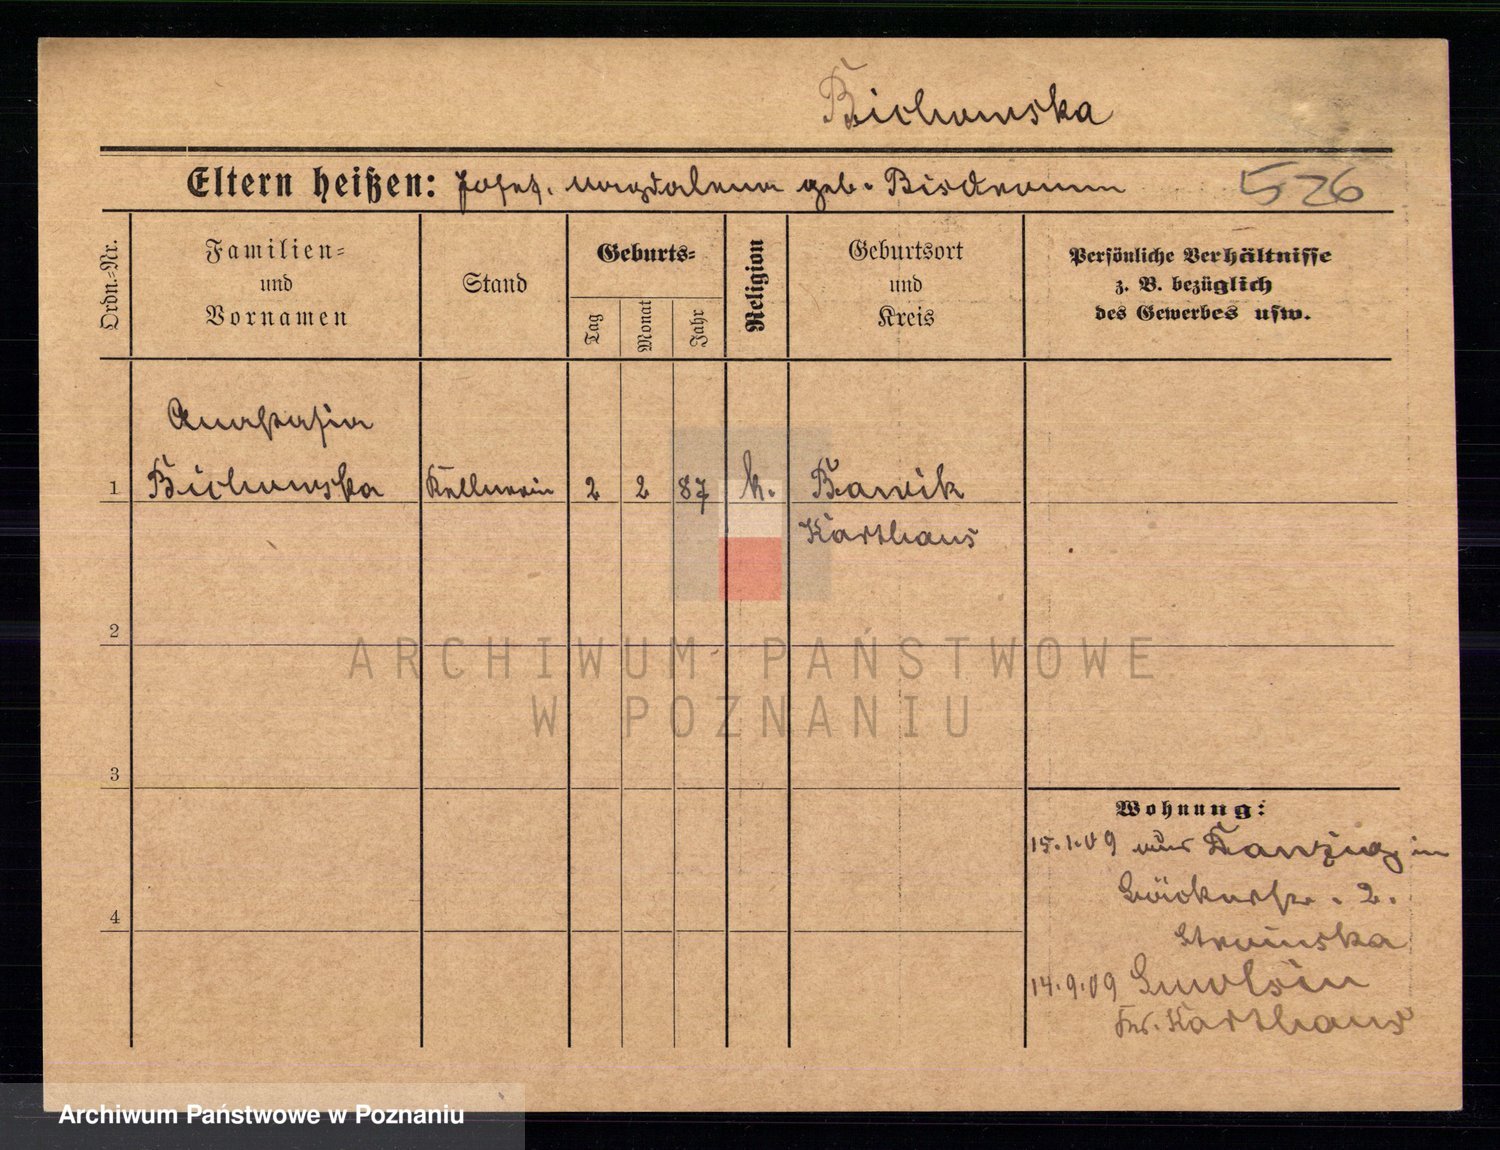 Bichowska
Eltern heißen: Josef. Magdalena geb.
526
Ordn.=Nr.
Familien=
und
Vornamen
Stand
Geburts=
Tag
Monat
Jahr
Religion
Geburtsort
und
Kreis
Persönliche Verhältnisse
z. B. bezüglich
des Gewerbes usw.
Anastasia
1 Bichowska Kellnerin 2 2 87 k. Bawik
Karthaus
2
3
4
Wohnung:
15.1.09 aus Danzig in
2.
Stroinska
14.9.09
Krs. Karthaus
ARCHIWUM PAŃSTWOWE
W POZNANIU
Archiwum Państwowe w Poznaniu